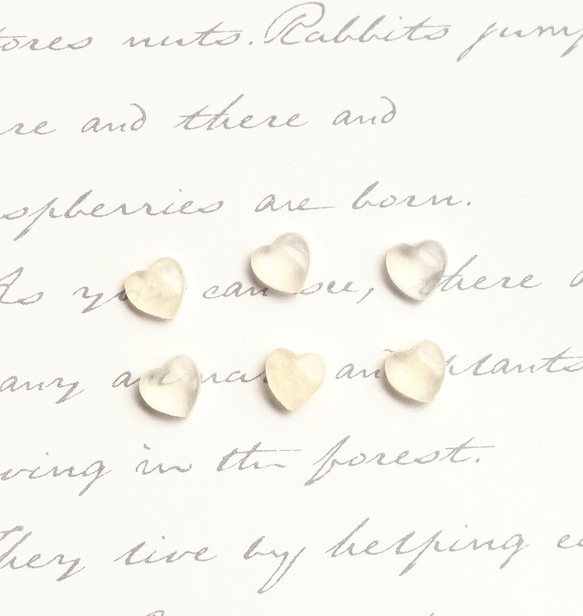 tores nuts. Rabbits jump
re and there and
spberries are born.
As you can see, there a
any animals and plants
ving in the forest.
They live by helping ea